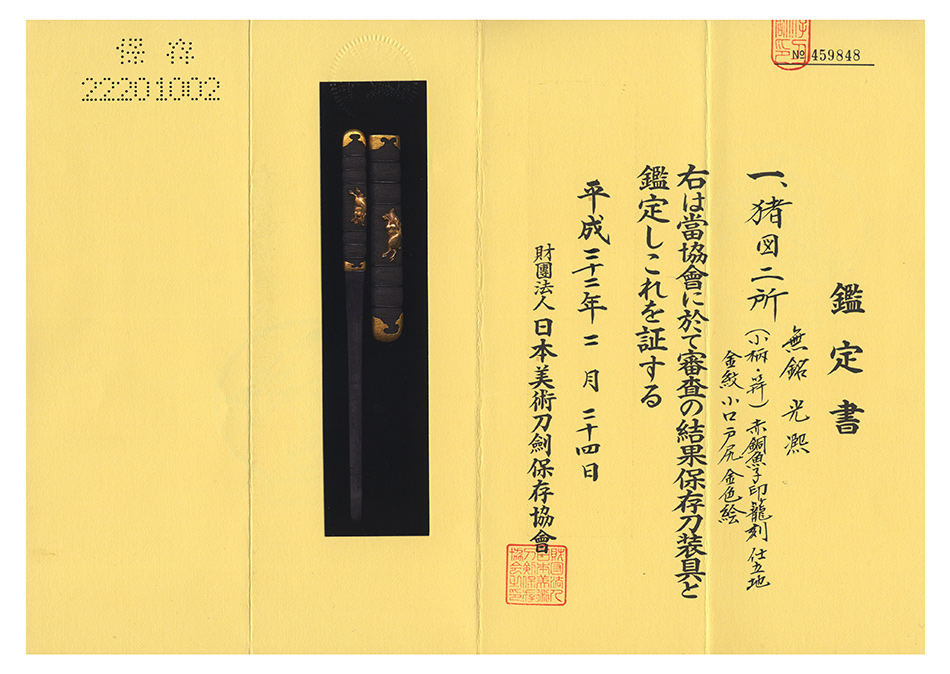 保存
22201002
№ 459848
鑑定書
一、猪図二所
無銘 光凞
(小柄・笄) 赤銅魚子印籠刻 仕立地
金紋 小口 戸尻 金色絵
右は當協會に於て審査の結果保存刀装具と
鑑定しこれを証する
平成二十二年二月二十四日
財團法人 日本美術刀劍保存協會